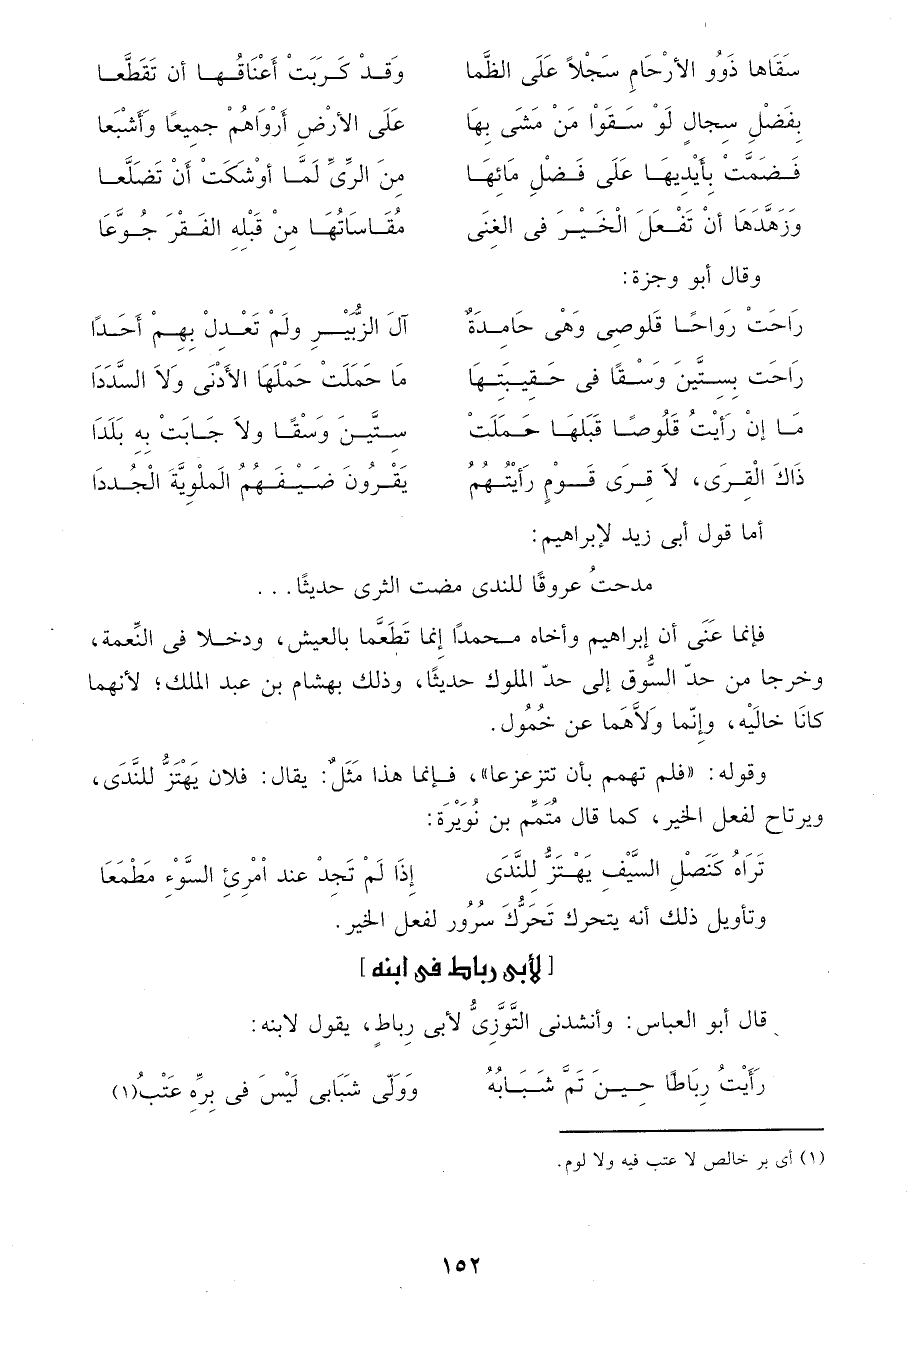 سَقَاها ذَوُو الأرْحَامِ سَجْلاً عَلَى الظَّما وَقَدْ كَرَبَتْ أَعْنَاقُها أن تَقَطَّعا
بِفَضْلِ سِجالٍ لَوْ سَقَوْا مَنْ مَشَى بِهَا عَلَى الأرْضِ أرْوَاهُمْ جميعًا وَأَشْبَعا
فَضمَّتْ بأيْدِيهَا عَلَى فَضْلِ مَائِهَا مِنَ الرِّىِّ لَمَّا أوْشَكَتْ أنْ تَضلَّعا
وَزَهَّدَهَا أنْ تَفْعَلَ الْخَيْرَ فى الغِنَى مُقَاسَاتُهَا مِنْ قَبْلِهِ الفَقْرَ جُوَّعَا
وقال أبو وجزة:
رَاحَتْ رَوَاحًا قَلُوصِى وَهْىَ حَامِدَةٌ آلَ الزُّبَيْرِ ولَمْ تَعْدِلْ بِهِمْ أَحَدًا
رَاحَتْ بِسِتِّينَ وَسْقًا فى حَقِيبَتِهَا مَا حَمَلَتْ حَمْلَهَا الأَدْنَى وَلاَ السَّدَدَا
مَا إنْ رَأَيْتُ قَلُوصًا قَبْلَهَا حَمَلَتْ سِتِّينَ وَسْقًا ولاَ جَابَتْ بِه بَلَدَا
ذَاكَ الْقِرَى، لاَ قِرَى قَوْمٍ رَأَيْتُهُمُ يَقْرُونَ ضَيْفَهُمُ المَلْوِيَّةَ الْجُدَدَا
أما قول أبى زيد لإبراهيم:
مدحتُ عروقًا للندى مصت الثرى حديثًا...
فإنما عَنَى أن إبراهيم وأخاه محمدًا إنما تَطَعَّمَا بالعيش، ودخلا فى النِّعمة،
وخرجا من حدّ السُّوق إلى حدّ الملوك حديثًا، وذلك بهشام بن عبد الملك؛ لأنهما
كانَا خالَيْهِ، وإنّما وَلاَّهُما عن خُمُولٍ.
وقوله: «فلم تهمم بأن تتزعزعا»، فإنما هذا مَثَلٌ: يقال: فلان يَهْتَزُّ للنَّدَى،
ويرتاح لفعل الخير، كما قال مُتَمِّم بن نُوَيْرَةَ:
تَرَاهُ كَنَصْلِ السَّيْفِ يَهْتَزُّ للنَّدَى إذَا لَمْ تَجِدْ عند امْرِئِ السَّوْءِ مَطْمَعَا
وتأويل ذلك أنه يتحرك تَحَرُّكَ سُرُورٍ لفعل الخير.
[لأبى رباط فى ابنه]
قال أبو العباس: وأنشدنى التَّوَّزِىُّ لأبى رِباطٍ، يقول لابنه:
رَأَيْتُ رِبَاطًا حِينَ تَمَّ شَبَابُهُ وَوَلَّى شَبَابِى لَيْسَ فى بِرِّهِ عَتْبُ(١)
(١) أى بر خالص لا عتب فيه ولا لوم.
١٥٢